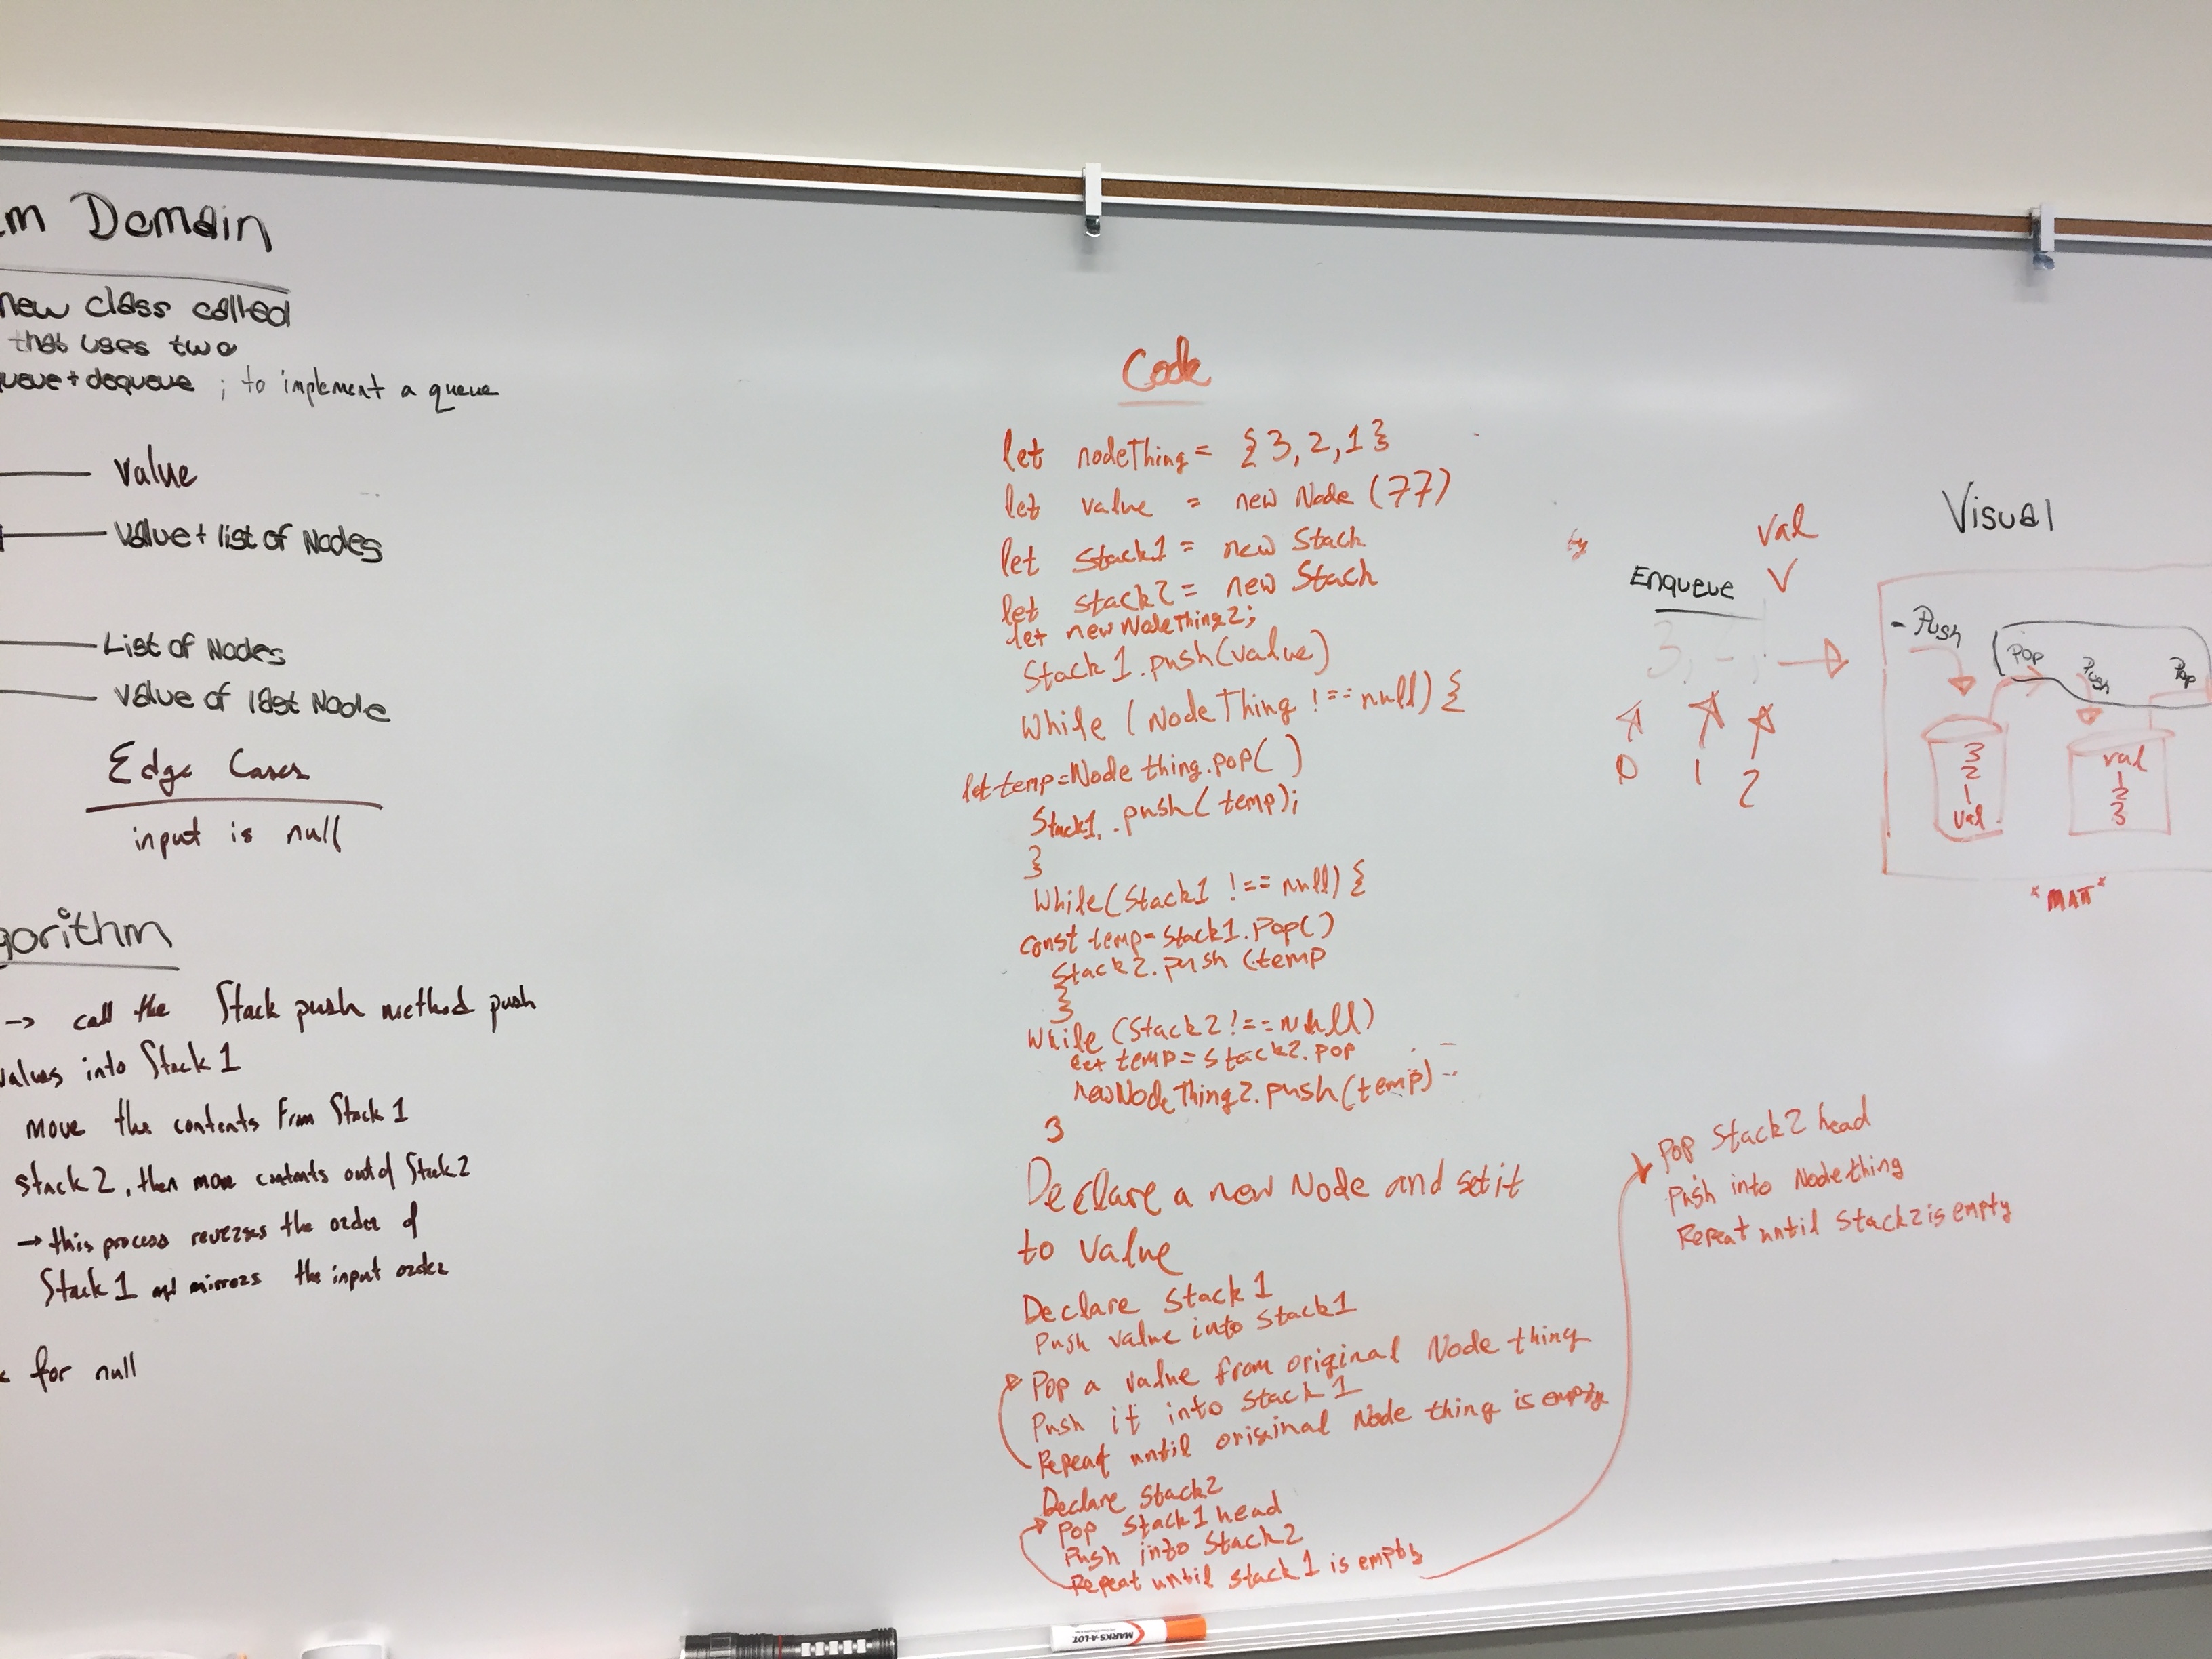 Domain
new class called
that uses two
queue + dequeue ; to implement a queue
Value
Value + list of Nodes
List of Nodes
Value of last Node
Edge Cases
input is null
gorithm
-> call the Stack push method push
values into Stack 1
move the contents from Stack 1
stack 2, then move contents out of Stack 2
→ this process reverses the order of
Stack 1 and mirrors the input order
for null
Code
let nodeThing = {3, 2, 1}
let value = new Node (77)
let Stack1 = new Stack
let stack2 = new Stack
let newNodeThing2;
Stack1.push(value)
While (NodeThing !== null) {
let temp = Node thing.pop( )
Stack1. .push( temp);
}
While (Stack1 !== null) {
const temp = Stack1.Pop()
Stack2.push (temp
}
While (Stack2 !== null)
let temp = Stack2.pop
newNodeThing2.push(temp)
}
Declare a new Node and set it
to value
Declare Stack 1
Push value into Stack1
Pop a value from original Node thing
Push it into Stack 1
Repeat until original Node thing is empty
Declare Stack2
Pop Stack1 head
Push into Stack2
Repeat until Stack 1 is empty
Pop Stack2 head
Push into Nodething
Repeat until Stack2 is empty
Visual
Val
V
Enqueue
3,
0
1
2
- Push
Pop
Push
Pop
3
2
1
val
val
1
2
3
MARKS-A-LOT